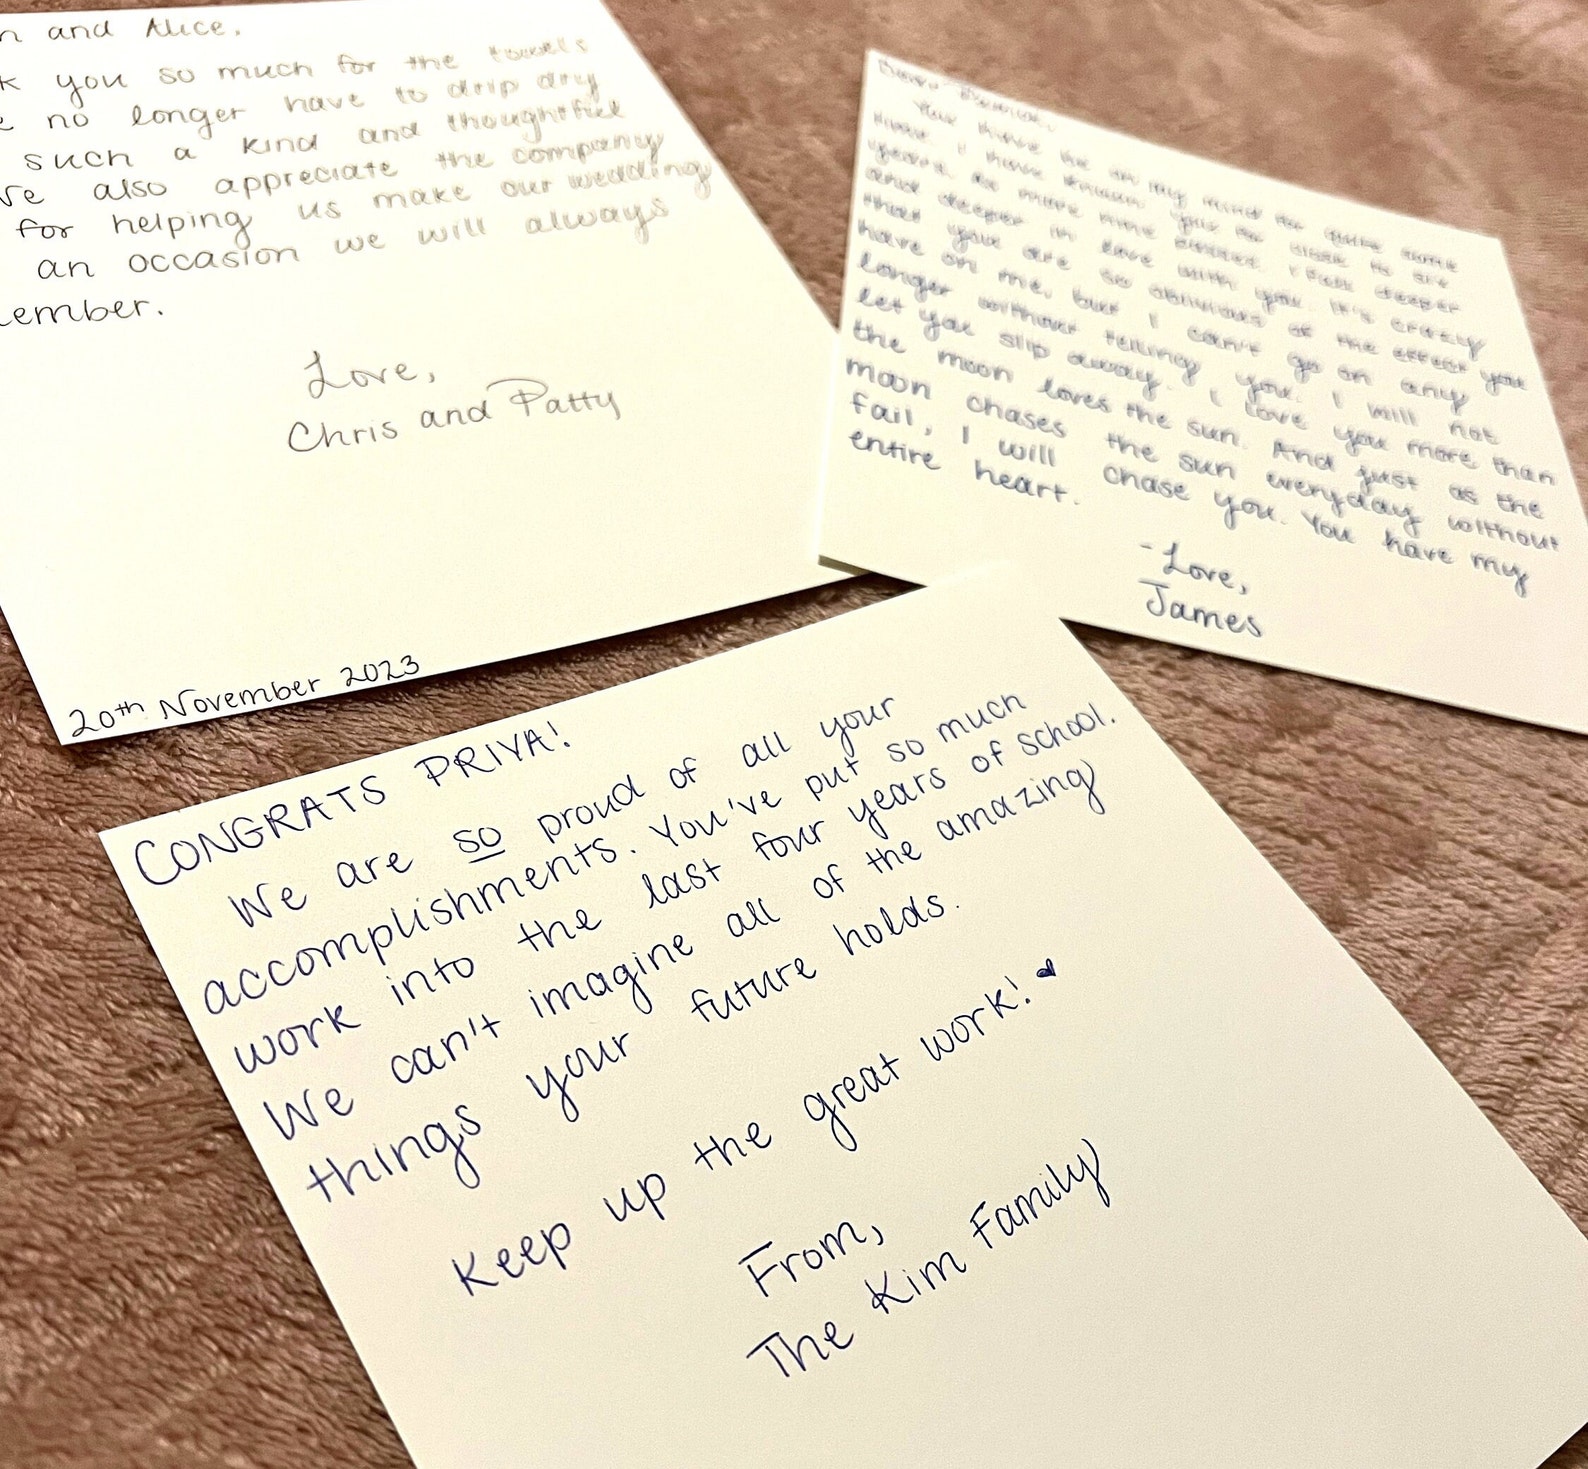 and Alice.
you so much for the towels
no longer have to drip dry
such a kind and thoughtful
also appreciate the company
for helping us make our wedding
an occasion we will always
ember.
Love,
Chris and Patty
20th November 2023
You have be on my mind for quite some
years.
and deeper in love with you. It's crazy
that you are so oblivious of the effect you
have on me, but I can't go on any
longer without telling you. I will not
let you slip away. I love you more than
the moon loves the sun. And just as the
moon chases the sun everyday without
fail, I will chase you. You have my
entire heart.
-Love,
James
CONGRATS PRIYA!
We are so proud of all your
accomplishments. You've put so much
work into the last four years of school.
We can't imagine all of the amazing
things your future holds.
Keep up the great work!
From,
The Kim Family